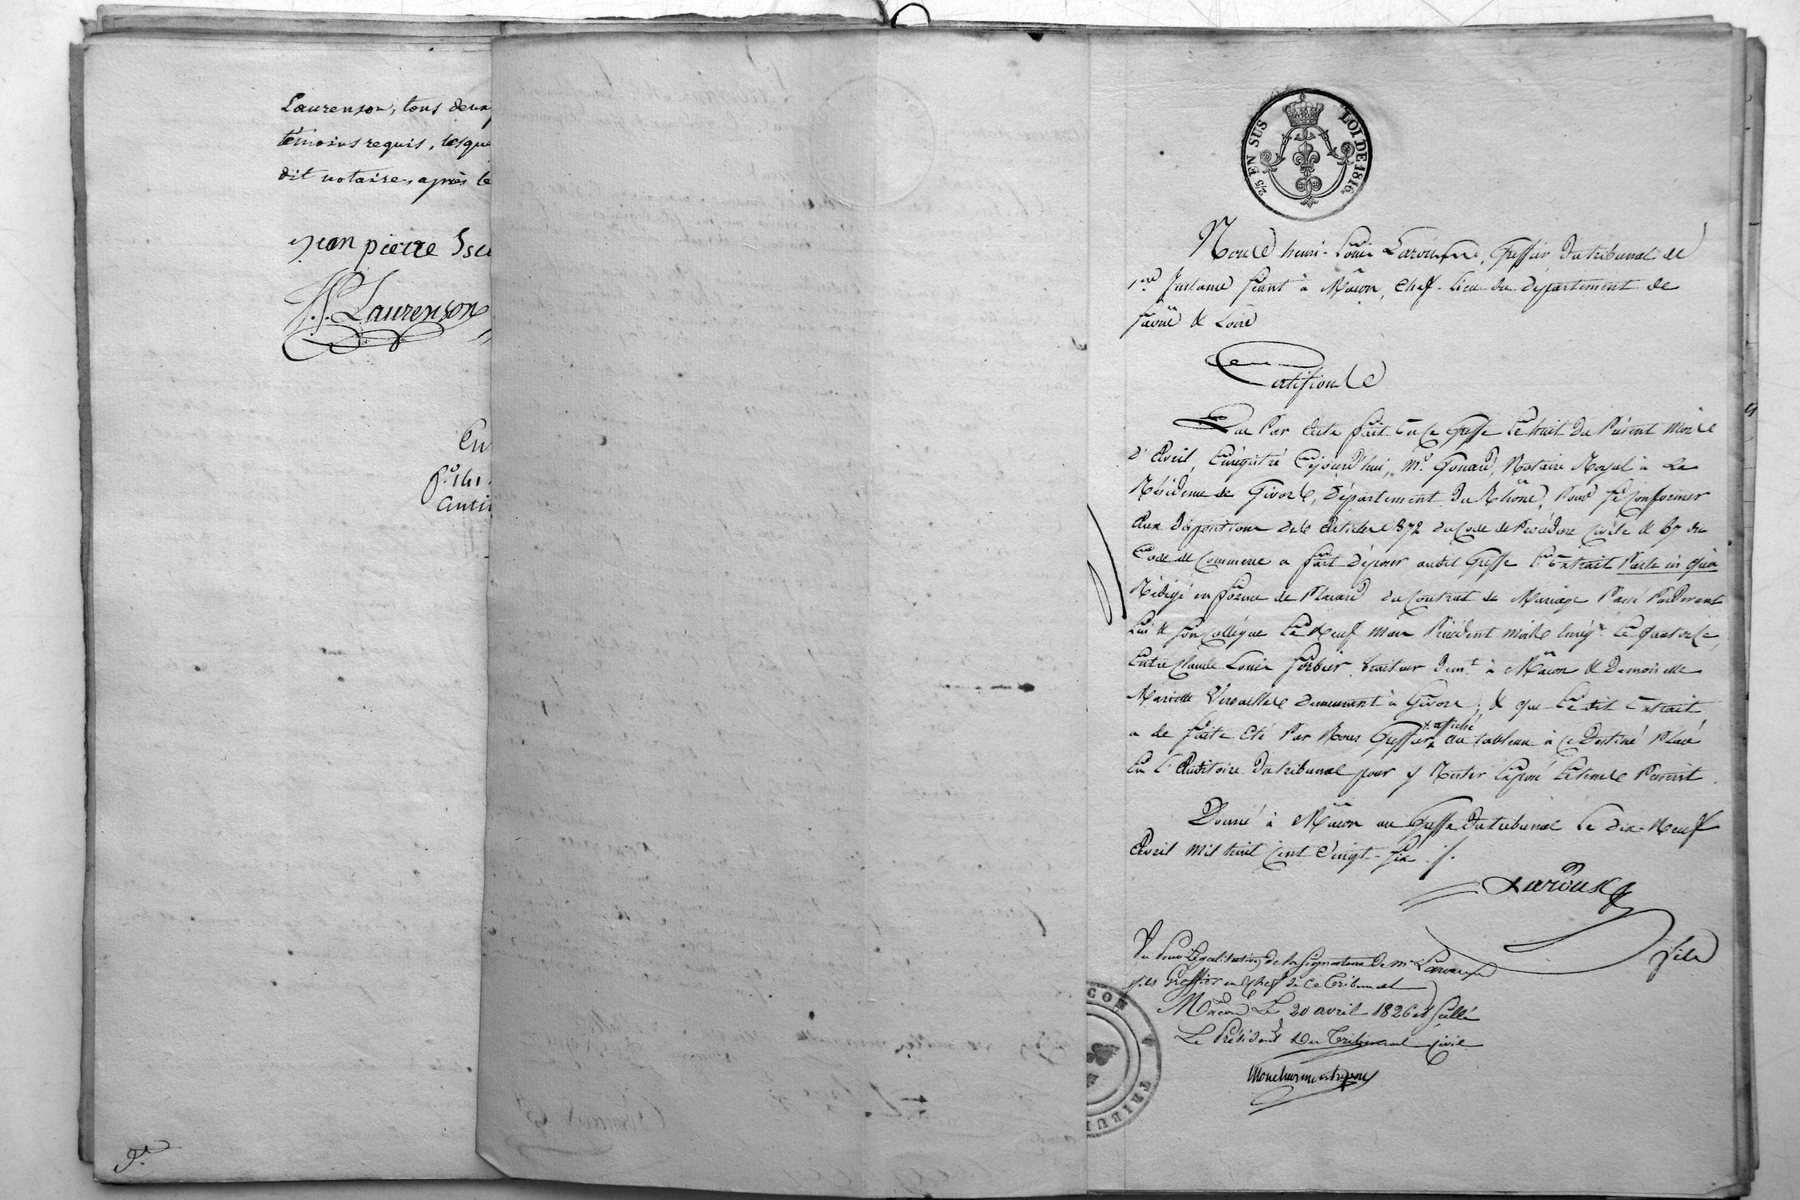 Laurenson, tous deux
témoins requis, lesqu
dit notaire, après le
Jean pierre
J.P. Laurenson
En
2/5 EN SUS LOI DE 1816.
Nous henri-Louis Larousse, Greffier du tribunal de
1ere Instance séant à Mâcon, chef-lieu du département de
Saone & Loire
Certifions
Que Par acte fait en ce Greffe le huit du Présent Mois
d'Avril, Enrégistré Cejourd'hui, Me. Gonard, Notaire Royal à la
Résidence de Givors, Département du Rhône, Pour se conformer
aux dispositions de l'article 872 du Code de Procédure Civile & 67 du
Code de Commerce a fait déposer audit Greffe l'Extrait
Rédigé en forme de Placard du Contrat de Mariage Passé Pardevant
Lui & son Collégue le Neuf mars Précédent Enrég. le quatorze,
Entre Claude Louis traiteur demt. à Mâcon & Demoiselle
Mariette demeurant à Givors, & que ledit Extrait
a de suite été Par Nous Greffier affiché au tableau à ce Destiné Placé
En l'Auditoire du tribunal pour y Rester Exposé
Donné à Mâcon au Greffe du tribunal le dix-Neuf
Avril Mil huit Cent Vingt-six ./.
Larousse
fils
Vu Pour Légalisation de la Signature de Mr Larousse
fils Greffier en chef de ce Tribunal
Macon Le 20 avril 1826 et Scellé
Le Président Du Tribunal Civil
CON
TRIBU